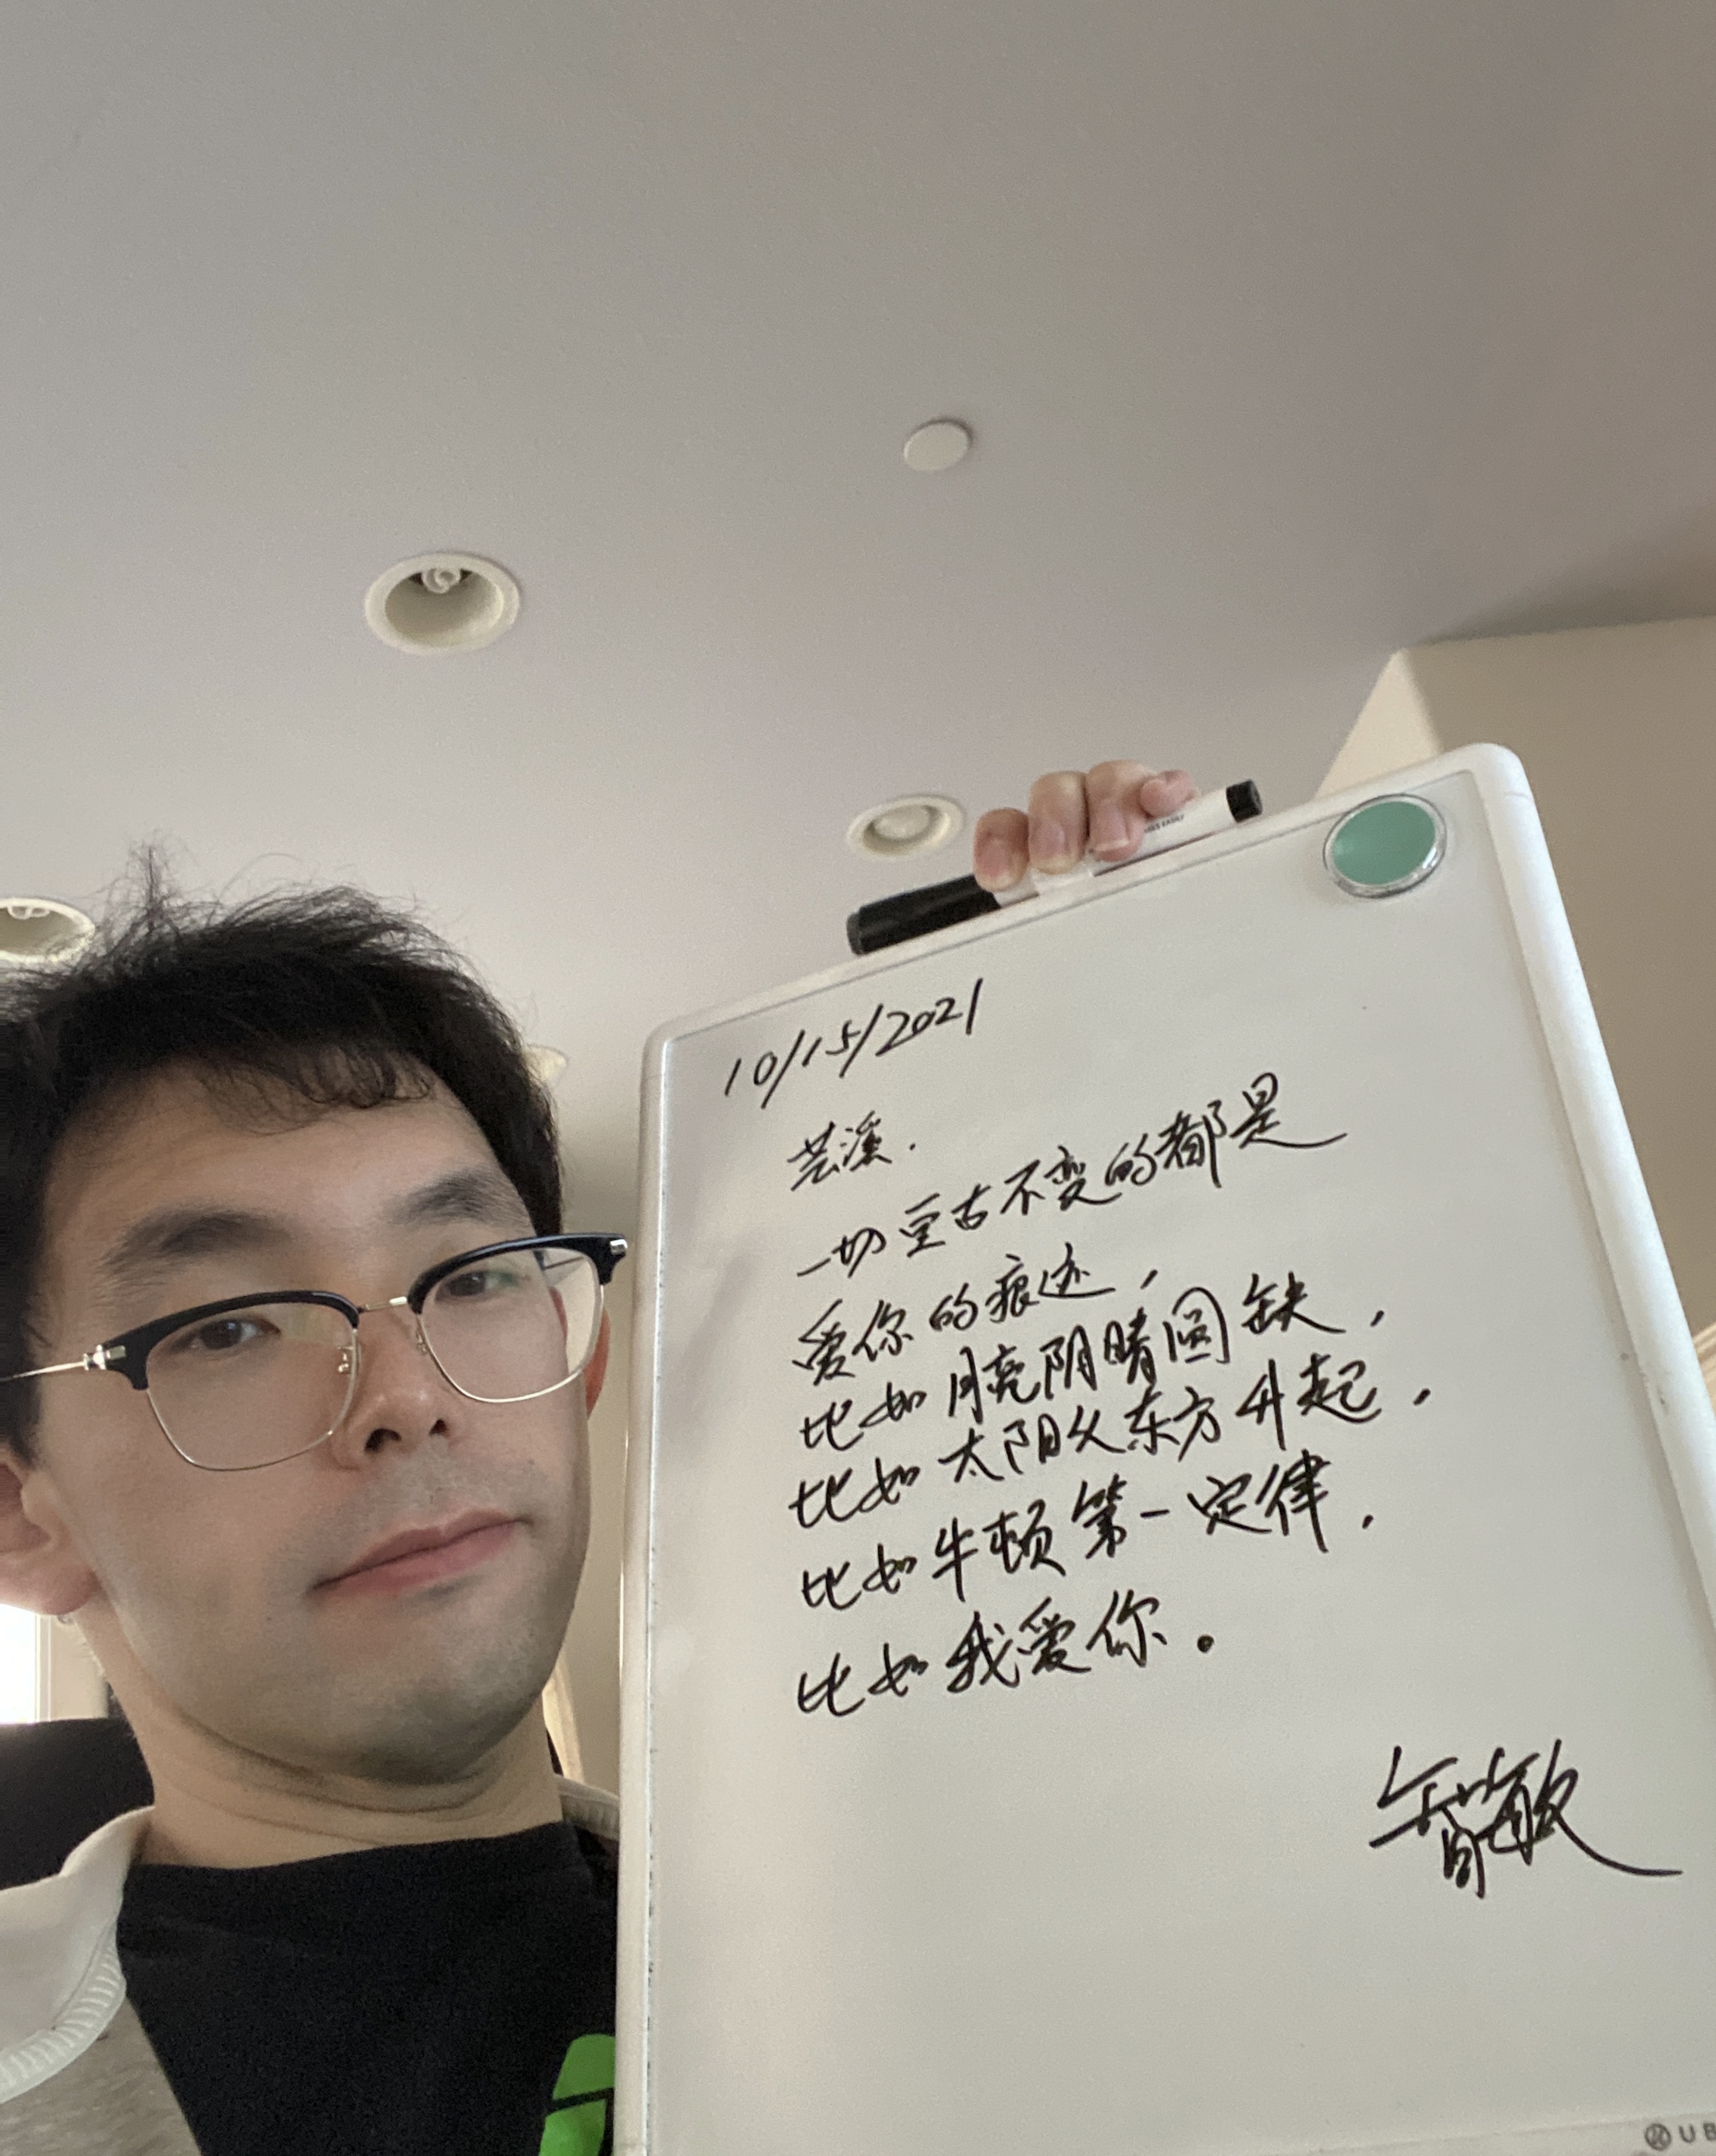 10/15/2021
芸溪.
一切亘古不变的都是
爱你的痕迹，
比如月亮阴晴圆缺，
比如太阳从东方升起，
比如牛顿第一定律，
比如我爱你。
智敏
UB